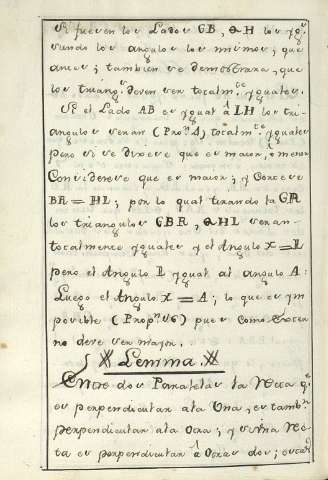 Si fueren los Lados GB, QH los ygs.
siendo los angulos los mismos, que
antes; tambien se demostrara, que
los triangs. deven ser totalmte. yguales.
Si el Lado AB es ygual à LH los tri-
angulos seran (Propn. 4) totalmte. yguales
pero si se dixere que es maior, ò menor
Considerese que es maior; y Cortese
BR = HL; por lo qual tirando la GR
los triangulos GBR, QHL seran
totalmente yguales y el Angulo X = L
pero el Angulo L ygual al angulo A:
Luego el Angulo X = A; lo que es ym
posible (Propn. 16) pues como Externo
no deve ser major.
Lemma
Entre dos Parralelas la Recta q.
es perpendicular a la Una, es tambn.
perpendicular a la Otra; y si Una Rec
ta es perpendicular à Otras dos; estas